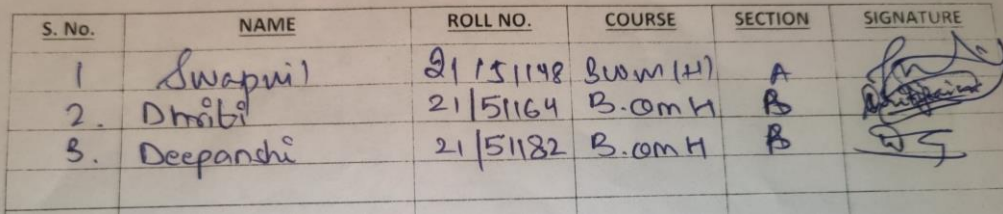 S. No. NAME ROLL NO. COURSE SECTION SIGNATURE
1 Swapnil 21/51148 B.com(H) A
2. Dhriti 21/51164 B.com H B
3. Deepanshi 21/51182 B.com H B